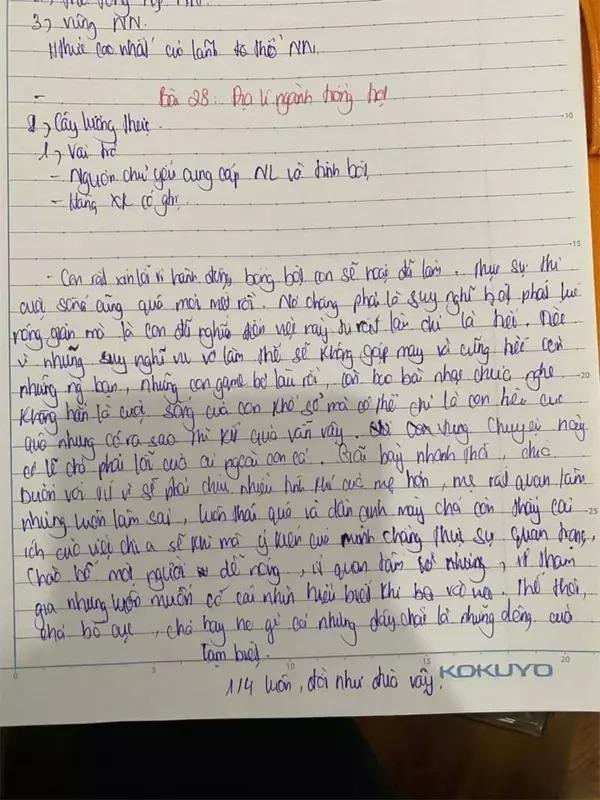 3, vùng NN.
Hthức cao nhất của lãnh thổ NN.
-
Bài 28: Địa lí ngành trồng trọt
I, Cây lương thực
1, Vai trò
- Nguồn chủ yếu cung cấp NL và tinh bột,
- Hàng XK có gtrị.
10
15
- Con rất xin lỗi vì hành động bồng bột con sẽ hoặc đã làm. Thực sự thì
cuộc sống cũng quá mới mệt rồi. Nó chẳng phải là suy nghĩ bột phát lúc
nóng giận mà là con đã nghĩ đến việc này từ rất lâu chỉ là hơi. Tiếc
vì những suy nghĩ vu vơ làm thế sẽ không gặp may vì cũng hết
những ng bạn, những con game bỏ lâu rồi, còn bao bài nhạc chưa nghe
20
Không hẳn là cuộc sống của con khổ sở mà có thể chỉ là con tiêu cực
quá nhưng có ra sao thì kết quả vẫn vậy. con chuyện này
có lẽ chả phải lỗi của ai ngoài con cả. Giãi bày nhanh thôi, chắc
buồn với vì sẽ phải chịu nhiều tính khí của mẹ hơn, mẹ rất quan tâm
nhưng luôn làm sai, luôn thái quá và dần anh mày chả còn thấy cái
25
ích của việc chia sẻ khi mà ý kiến của mình chẳng thực sự quan trọng,
Chào bố một người dễ nóng, ít quan tâm nhưng, ít tham
gia nhưng luôn muốn có cái nhìn hiểu biết khi Thế thôi,
chả bố cục, chả hay ho gì cả nhưng đây chắc là những dòng cuối
tạm biệt.
0 10 15 KOKUYO 20
1/4 luôn, đời như đùa vậy.